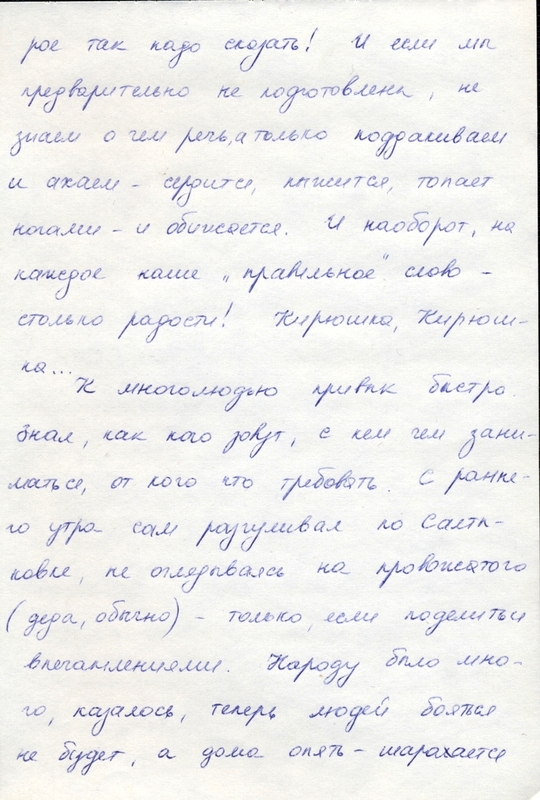 рое так надо сказать! И если мы
предварительно не подготовлены, не
знаем о чем речь, а только поддакиваем
и ахаем - сердится, пыжится, топает
ногами - и обижается. И наоборот, на
каждое наше „правильное" слово -
столько радости! Кирюшка, Кирюш-
ка...
К многолюдью привык быстро.
Знал, как кого зовут, с кем чем зани-
маться, от кого что требовать. С ранне-
го утра сам разгуливал по Салты-
ковке, не оглядываясь на провожатого
(деда, обычно) - только, если поделиться
впечатлениями. Народу было мно-
го, казалось, теперь людей бояться
не будет, а дома опять - шарахается